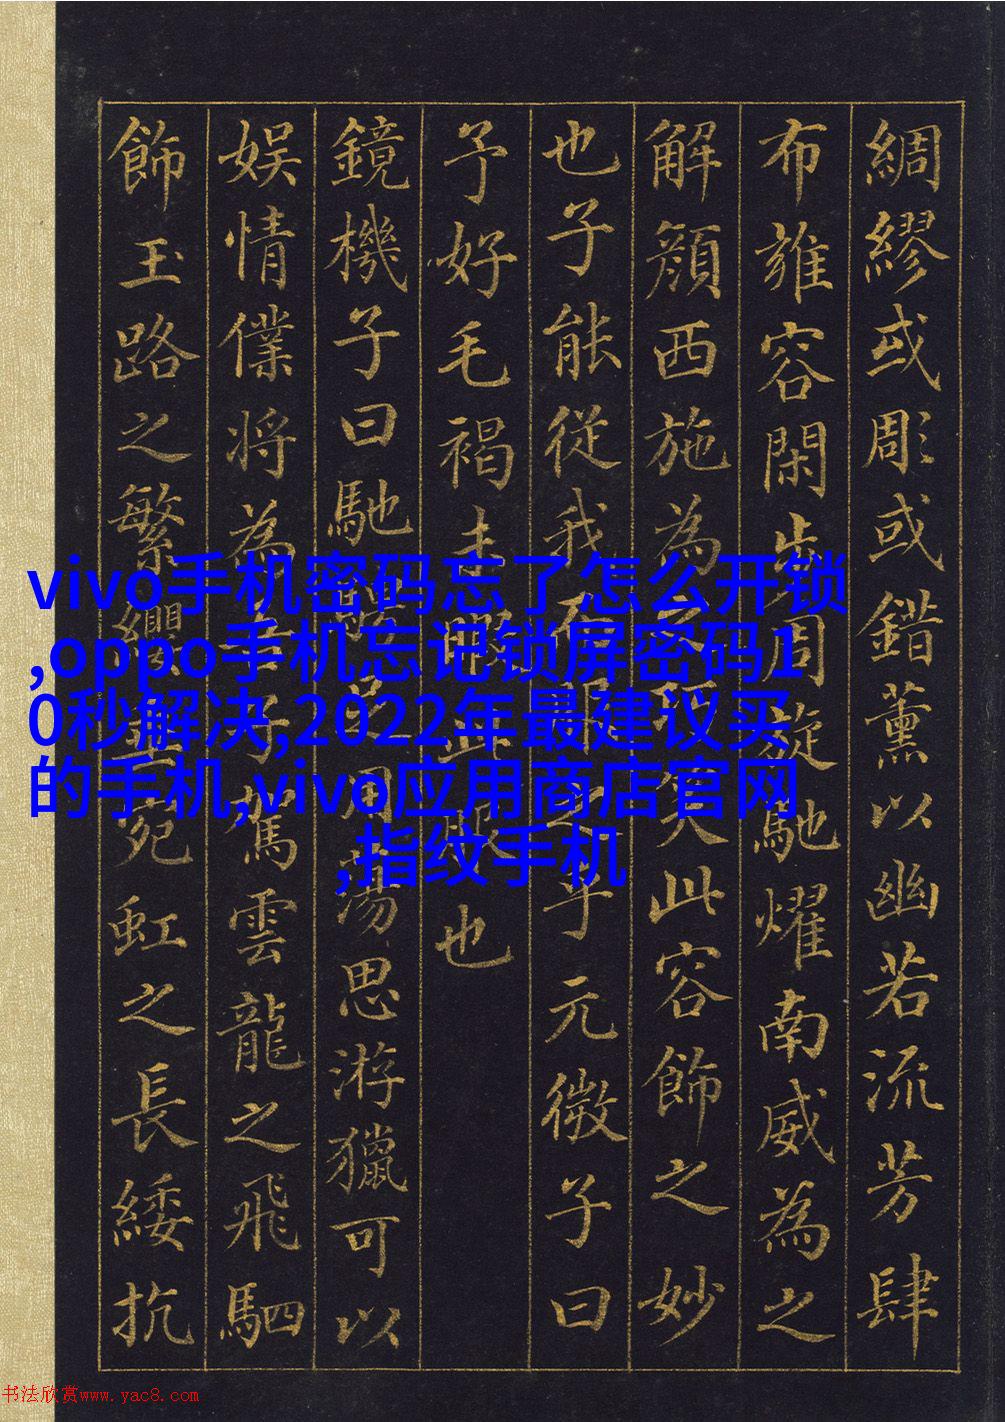 綢繆或彫或錯薰以幽若流芳肆
布雍容閑步周旋馳耀南威為之
解顏西施為之巧笑此容飾之妙
也子能從我而服之乎元微子曰
予好毛褐未暇此服也
鏡機子曰馳騁足用蕩思游獵可以
娱情僕將為吾子駕雲龍之飛駟
飾玉路之繁纓垂宛虹之長緌抗
vivo手机密码忘了怎么开锁
,oppo手机忘记锁屏密码1
0秒解决,2022年最建议买
的手机,vivo应用商店官网
,指纹手机
书法欣赏www.yac8.com